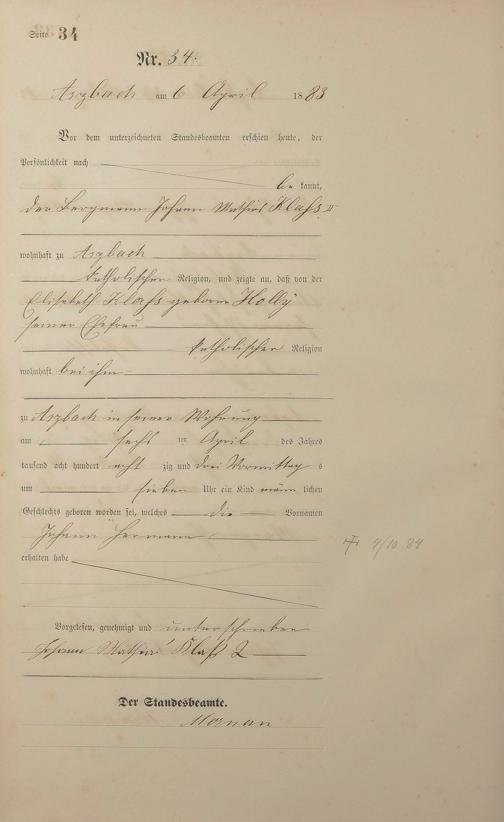 Seite 34
Nr. 34.
Aszbach am 6 April 1883
Vor dem unterzeichneten Standesbeamten erschien heute, der
Persönlichkeit nach
be kannt,
der Bergmann Johann Mathias Klahs II
wohnhaft zu Aszbach
katholischer Religion, und zeigte an, daß von der
Elisabeth Klahs geborene Holly
seiner Ehefrau
katholischer Religion
wohnhaft bei ihm
zu Aszbach in seiner Wohnung
am sechs ten April des Jahres
tausend acht hundert acht zig und drei Vormittag s
um sieben Uhr ein Kind männ lichen
Geschlechts geboren worden sei, welches die Vornamen
Johann Hermann
erhalten habe
4/10 84
Vorgelesen, genehmigt und unterschrieben
Johann Mathias Klahs 2
Der Standesbeamte.